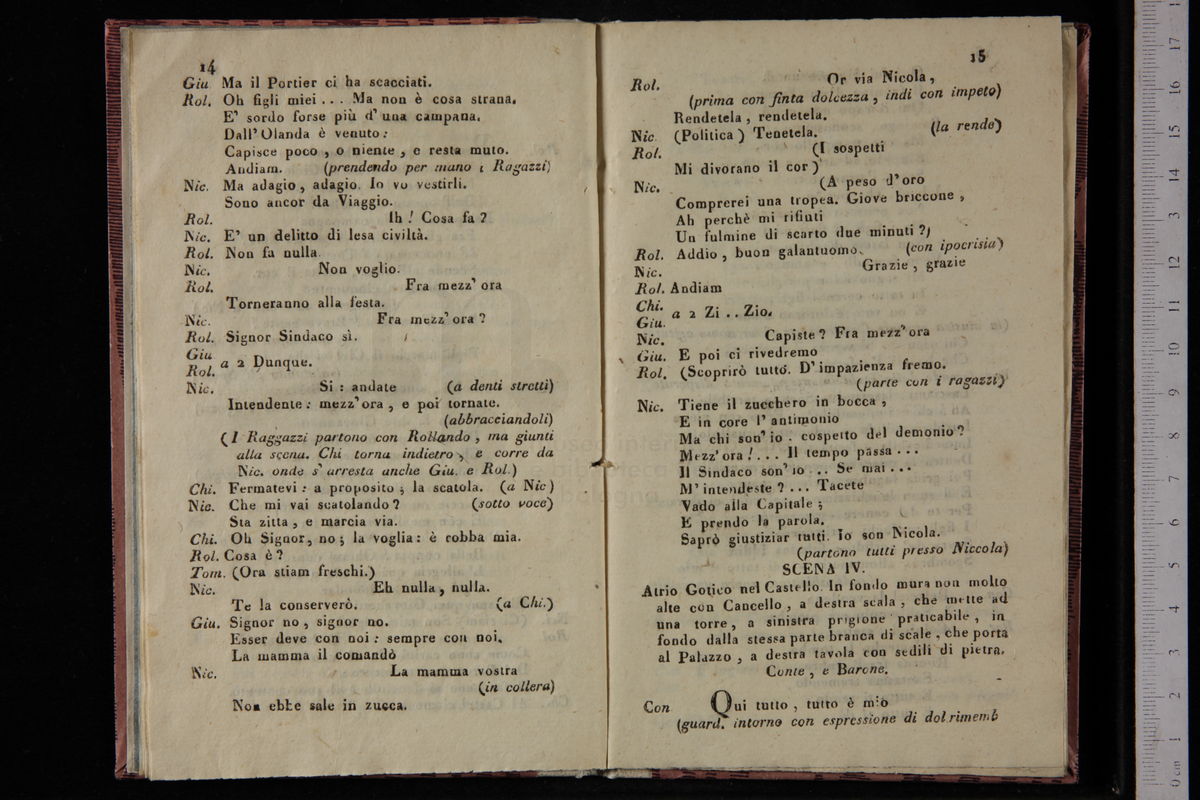 14
Giu Ma il Portier ci ha scacciati.
Rol. Oh figli miei . . . Ma non è cosa strana.
E' sordo forse più d' una campana.
Dall' Olanda è venuto :
Capisce poco , o niente , e resta muto.
Andiam. (prendendo per mano i Ragazzi)
Nic. Ma adagio , adagio. Io vo vestirli.
Sono ancor da Viaggio.
Rol. Ih ! Cosa fa ?
Nic. E' un delitto di lesa civiltà.
Rol. Non fa nulla.
Nic. Non voglio.
Rol. Fra mezz' ora
Torneranno alla festa.
Nic. Fra mezz' ora ?
Rol. Signor Sindaco sì.
Giu
Rol. a 2 Dunque.
Nic. Si : andate (a denti stretti)
Intendente : mezz' ora , e poi tornate.
(abbracciandoli)
(I Raggazzi partono con Rollando , ma giunti
alla scena. Chi torna indietro , e corre da
Nic. onde s' arresta anche Giu. e Rol.)
Chi. Fermatevi : a proposito ; la scatola. (a Nic)
Nic. Che mi vai scatolando ? (sotto voce)
Sta zitta , e marcia via.
Chi. Oh Signor, no ; la voglia : è robba mia.
Rol. Cosa è ?
Tom. (Ora stiam freschi.)
Nic. Eh nulla , nulla.
Te la conserverò. (a Chi.)
Giu. Signor no , signor no.
Esser deve con noi : sempre con noi.
La mamma il comandò
Nic. La mamma vostra
(in collera)
Non ebbe sale in zucca.
15
Rol. Or via Nicola ,
(prima con finta dolcezza , indi con impeto)
Rendetela , rendetela.
Nic. (Politica ) Tenetela. (la rende)
Rol. (I sospetti
Mi divorano il cor )
Nic. (A peso d' oro
Comprerei una tropea. Giove briccone ,
Ah perchè mi rifiuti
Un fulmine di scarto due minuti ?)
Rol. Addio , buon galantuomo. (con ipocrisia)
Nic. Grazie , grazie
Rol. Andiam
Chi.
Giu. a 2 Zi . . Zio.
Nic. Capiste ? Fra mezz' ora
Giu. E poi ci rivedremo
Rol. (Scoprirò tutto. D' impazienza fremo.
(parte con i ragazzi)
Nic. Tiene il zucchero in bocca ,
E in core l' antimonio
Ma chi son' io . cospetto del demonio ?
Mezz' ora ! . . . Il tempo passa . . .
Il Sindaco son' io . . . Se mai . . .
M' intendeste ? . . . Tacete
Vado alla Capitale ;
E prendo la parola.
Saprò giustiziar tutti. Io son Nicola.
(partono tutti presso Niccola)
SCENA IV.
Atrio Gotico nel Castello. In fondo mura non molto
alte con Cancello , a destra scala , che mette ad
una torre , a sinistra prigione praticabile , in
fondo dalla stessa parte branca di scale , che porta
al Palazzo , a destra tavola con sedili di pietra.
Conte , e Barone.
Con Qui tutto , tutto è mio
(guard. intorno con espressione di dol.rimemb